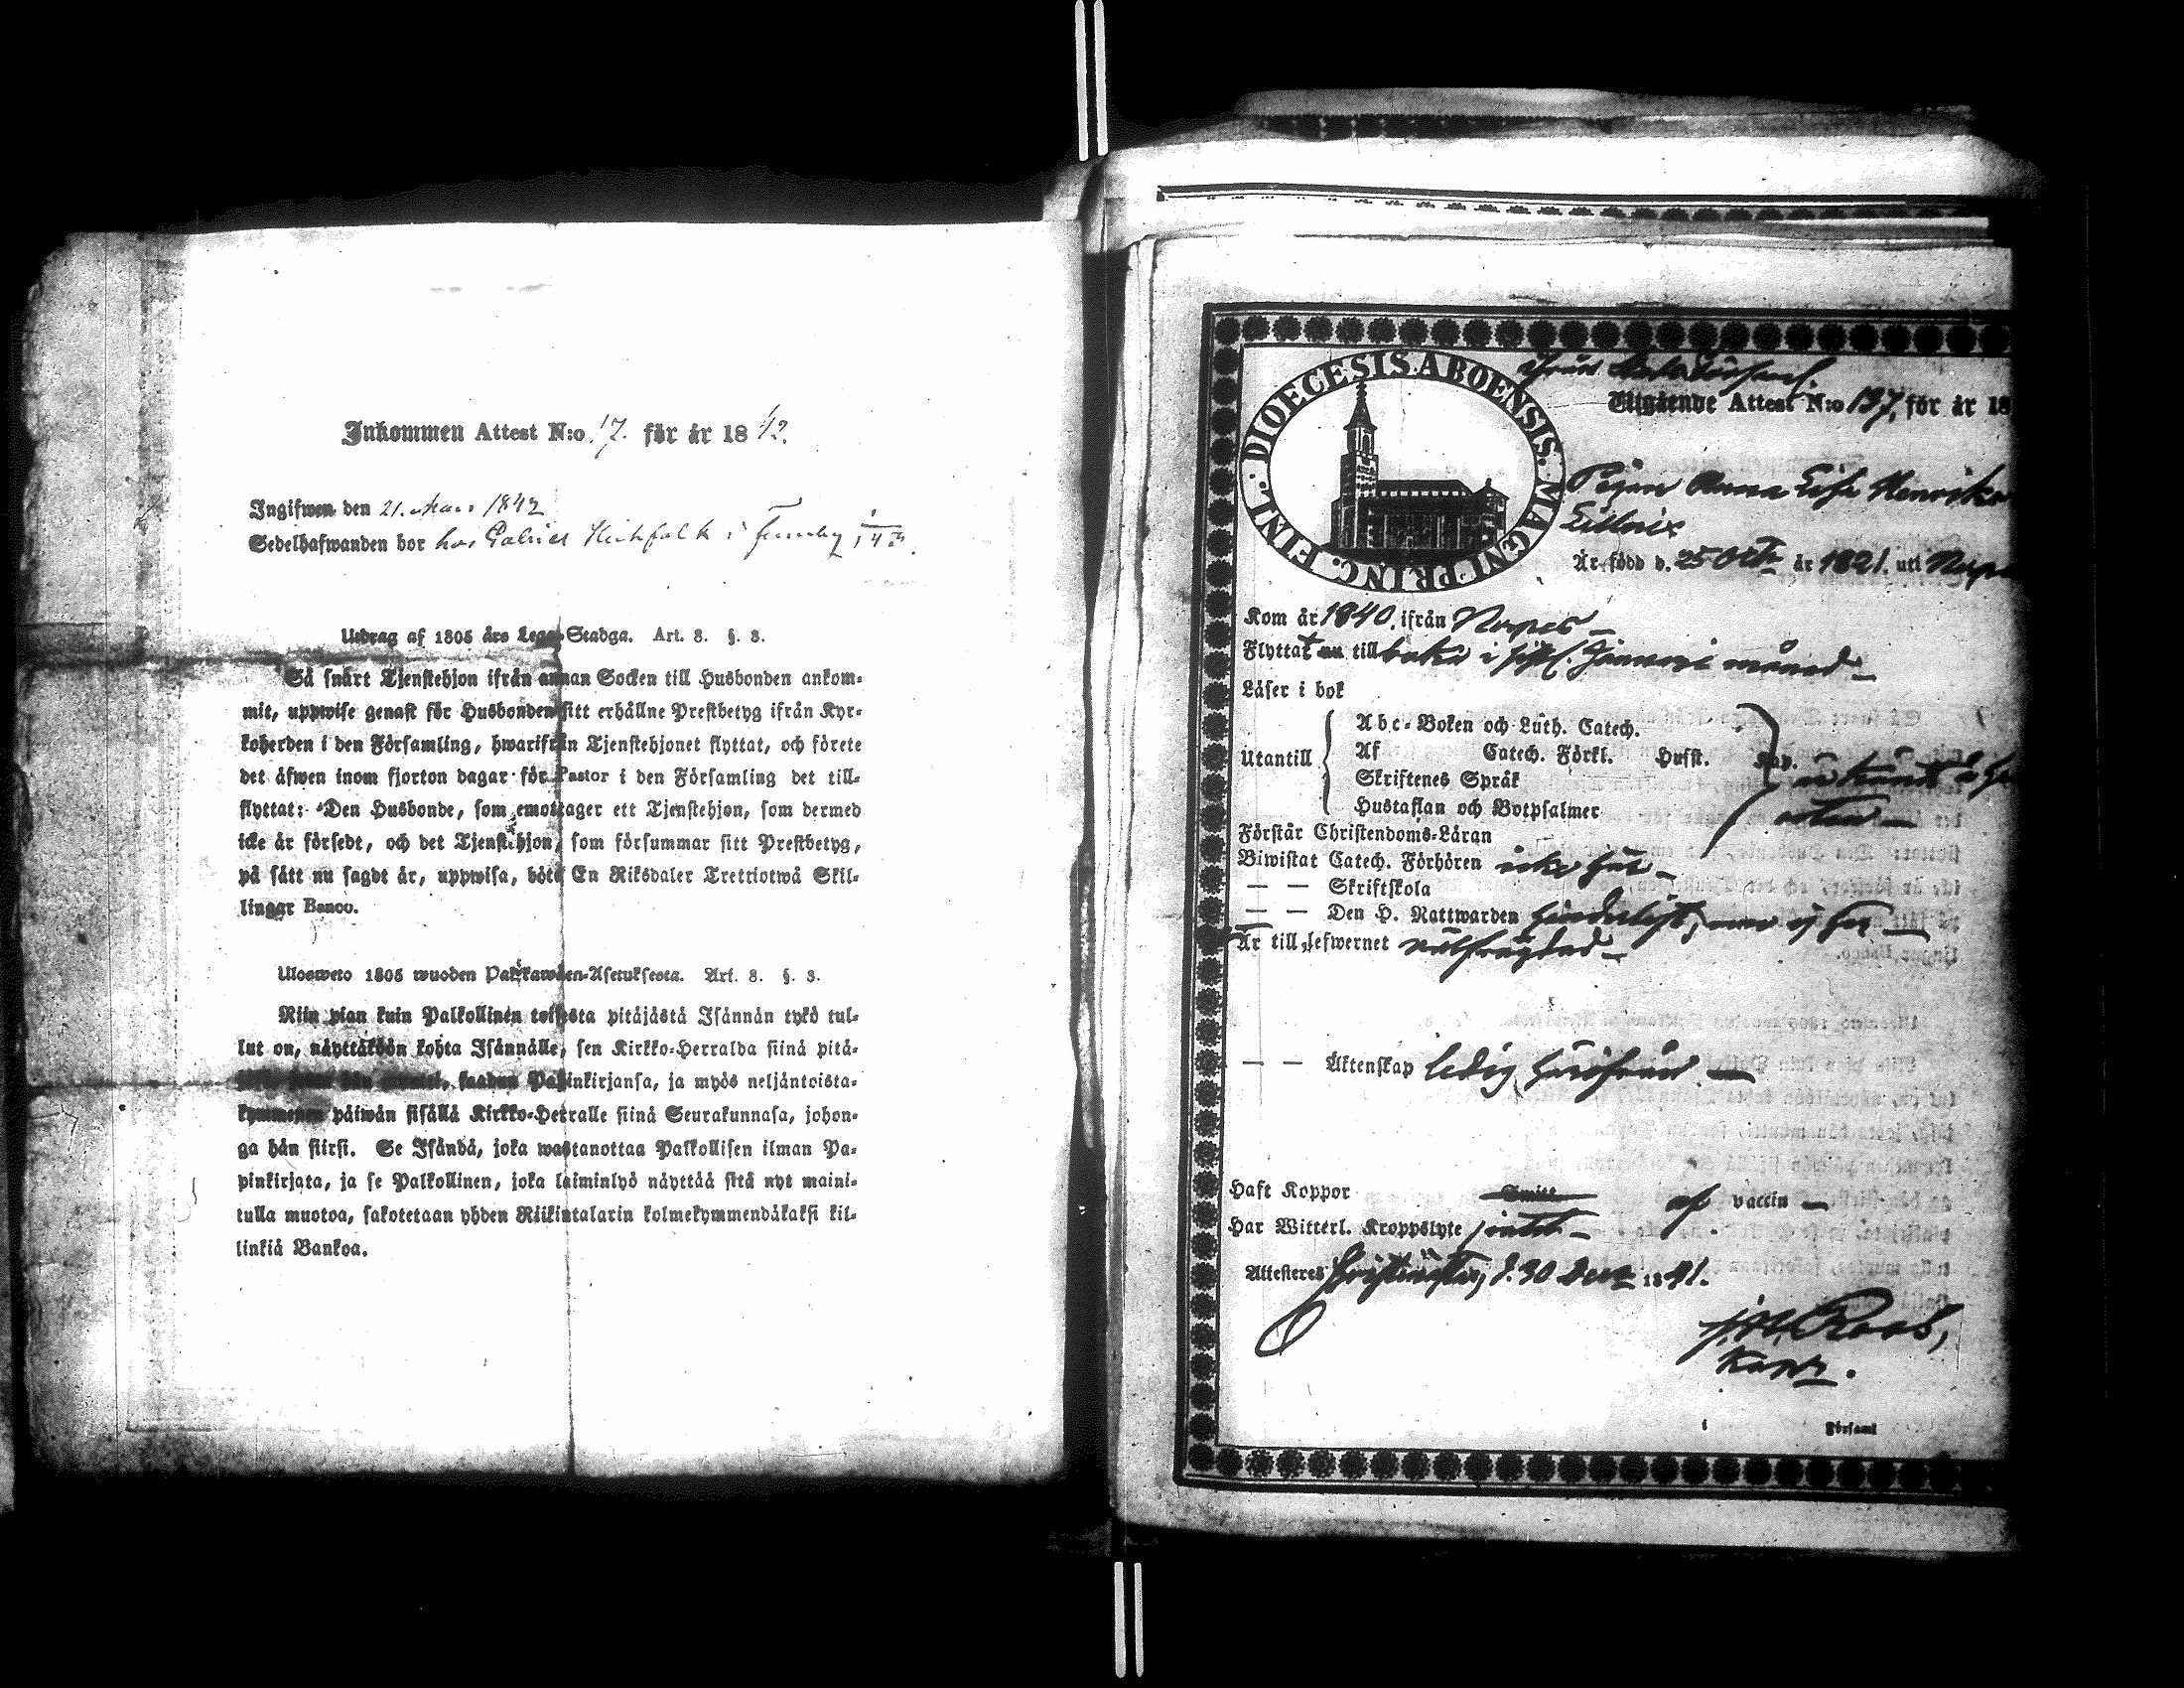 Inkommen Attest N:o 17. för år 1842.
Ingifwen den 21. Mars 1842
Sedelhafwanden bor hos Gabriel i
Utdrag af 1805 års Lego-Stadga. Art. 8. §. 3.
Så snart Tjenstehjon ifrån annan Socken till Husbonden ankom-
mit, uppwise genast för Husbonden sitt erhållne Prestbetyg ifrån Kyr-
koherden i den Församling, hwarifrån Tjenstehjonet flyttat, och förete
det äfwen inom fjorton dagar för Pastor i den Församling det till-
flyttat: Den Husbonde, som emottager ett Tjenstehjon, som dermed
icke är försedt, och det Tjenstehjon, som försummar sitt Prestbetyg,
på sätt nu sagdt är, uppwisa, böte En Riksdaler Trettiotwå Skil-
lingar Banco.
Ulosweto 1805 wuoden Palkkawäen-Asetuksesta. Art. 8. §. 3.
Niin pian kuin Palkollinen toisesta pitäjästä Isännän tykö tul-
lut on, näyttäköön kohta Isännälle, sen Kirkko-Herralda siinä pitä-
saadun Papinkirjansa, ja myös neljäntoista-
kymmenen päiwän sisällä Kirkko-Herralle siinä Seurakunnasa, johon-
ga hän siirsi. Se Isändä, joka wastanottaa Palkollisen ilman Pa-
pinkirjata, ja se Palkollinen, joka laiminlyö näyttää sitä nyt maini-
tulla muotoa, sakotetaan yhden Riikintalarin kolmekymmendäkaksi kil-
linkiä Bankoa.
DIOECESIS ABOENSIS. MAGNI PRINC. FINL.
Utgående Attest N:o 137, för år 18
Pigan Anna Lisa Henriks
Är född d. 25 Oct. år 1821. uti
Kom år 1840. ifrån Nerpes
Flyttat nu till baka i Januari månad
Läser i bok
Abc-Boken och Luth. Catech.
Utantill Af Catech. Förkl. Husst. Kap.
Skriftenes Språk
Hustaflan och Botpsalmer
Förstår Christendoms-Läran
Biwistat Catech. Förhören icke här
— — Skriftskola
— — Den H. Nattwarden ej här
Är till lefwernet wälfrägdad
— — Äktenskap ledig härifrån
Haft Koppor Smitt. af vaccin
Har Witterl. Kroppslyte intet
Attesteres Christinestad, d. 30 Dec. 1841.
J. M. Roos,
Kapn.
i Församl